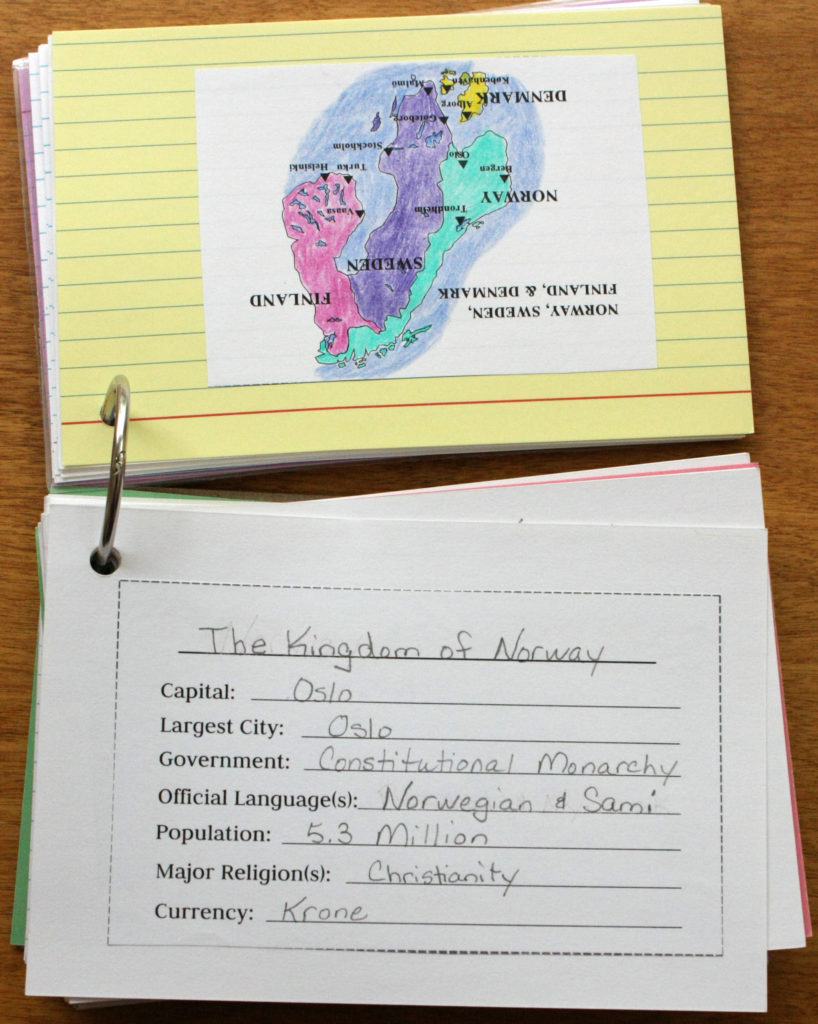 NORWAY, SWEDEN,
FINLAND, & DENMARK
FINLAND
SWEDEN
NORWAY
Trondheim
Vaasa
Bergen
Turku
Helsinki
Oslo
Stockholm
Göteborg
Alborg
DENMARK
Malmö
The Kingdom of Norway
Capital: Oslo
Largest City: Oslo
Government: Constitutional Monarchy
Official Language(s): Norwegian & Sami
Population: 5.3 Million
Major Religion(s): Christianity
Currency: Krone